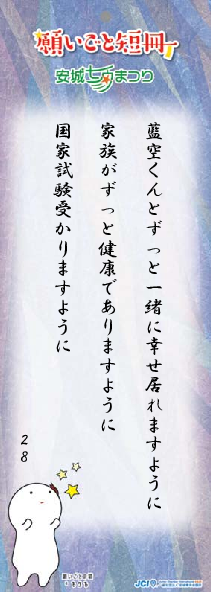 願いごと短冊
安城七夕まつり
藍空くんとずっと一緒に幸せ居れますように
家族がずっと健康でありますように
国家試験受かりますように
28
願いごと短冊
JCI